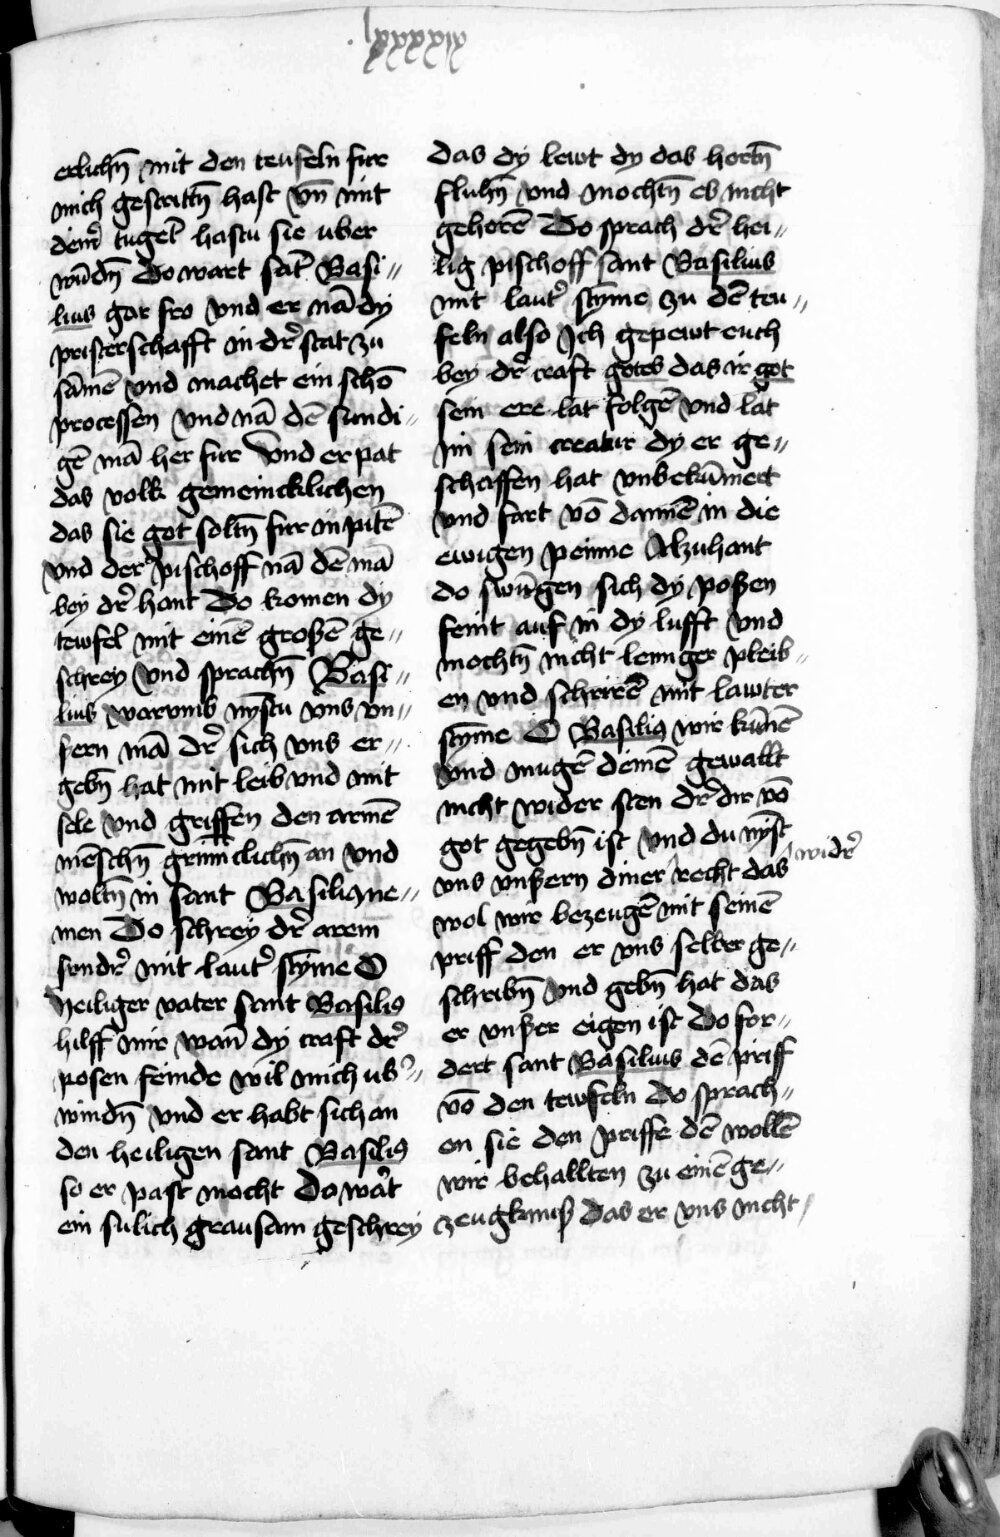 lxxxxix
erlichn̄ mit den teufeln fur
mich gestritn̄ hast vn̄ mit
deinr̄ tuget̄ hastu sie uber
wūdn̄ Do wart sāt Basi-
lius gar fro vnd er nā dy
pristerschafft in dr̄ stat zu
sāmē vnd machet ein schō
processen vnd nā dē sundi-
gē mā her fur Vnd er pat
das volk gemeincklichen
das sie got soltn̄ fur in pitē
vnd der pischoff nā dē mā
bey dr̄ hant Do komen dy
tewfel mit einē groβē ge-
schrey vnd sprachn̄ Basi-
lius warvmb nymstu vns vn-
sern mā dr̄ sich vns er-
gebn̄ hat mit leib vnd mit
sele vnd griffen den armē
mēschn̄ grimclichn̄ an vnd
woltn̄ in sant Basilio ne-
men Do schrey dr̄ arem
sundr̄ mit laut̄ stȳme O
heiliger vater sant Basilius
hilff mir wan̄ dy craft dr̄
posen feinde wil mich ub̄-
windn̄ vnd er habt sich an
den heiligen sant Basilius
so er past mocht Do wart
ein sulich grausam geschrey
das dy lewt dy das hortn̄
fluhn̄ vnd mochtn̄ es nicht
gehorē Do sprach dr̄ hei-
lig pischoff sant Basilius
mit laut̄ stȳme zu dē teu-
feln also Ich gepewt euch
bey dr̄ craft gotes das ir got
sein ere lat folgē vnd lat
im sein creatur dy er ge-
schaffen hat vnbekūmert
vnd fart vō dannē in die
ewigen peinne Alzuhant
do swūgen sich dy poβen
feint auf in dy lufft vnd
mochtn̄ nicht lennger pleib-
en vnd schrirē mit lawter
stȳme O Basilius wir kūnē
vnd mugē deinē gewallt
nicht wider sten dr̄ dir vō
got gegebn̄ ist vnd du nȳst
vns vnβern diner widr̄ recht das
wol wir bezeugē mit seinē
priff den er vns selber ge-
schribn̄ vnd gebn̄ hat das
er vnβer eigen ist Do for-
dert sant Basilius dē priff
vō den tewfeln Do sprach-
en sie den priffe dē wollē
wir behallten zu einē ge-
zeugknuβ das er vns nicht